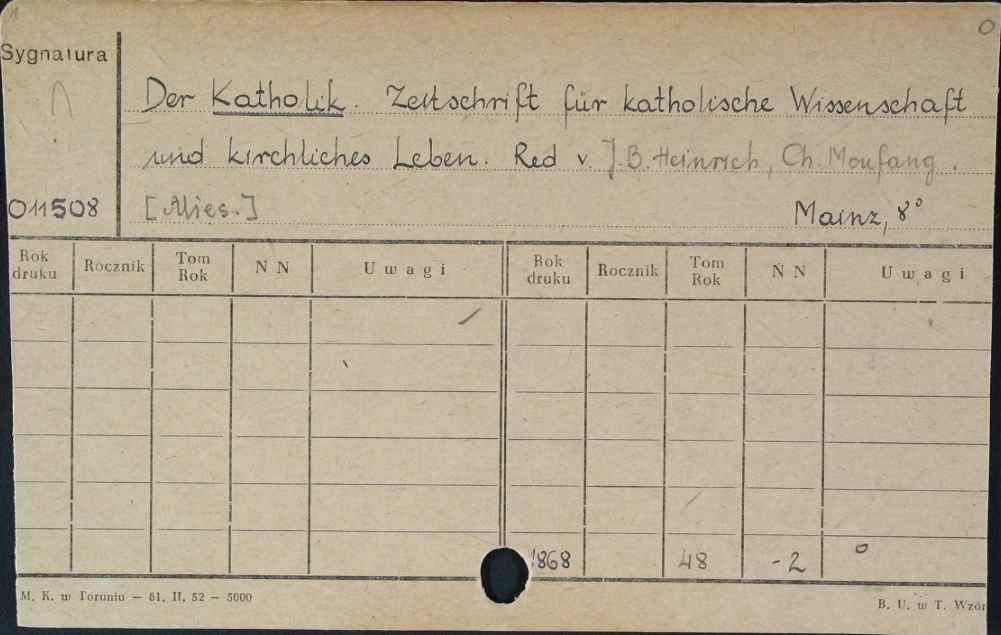 Sygnatura
Der Katholik. Zeitschrift für katholische Wissenschaft
und kirchliches Leben. Red v. J.B. Heinrich, Ch. Moufang.
011508 [Mies.] Mainz, 8°
Rok druku Rocznik Tom Rok N N Uwagi Rok druku Rocznik Tom Rok N N Uwagi
1868 48 -2
M. K. w Toruniu – 81, II, 52 – 5000 B. U. w T. Wzór